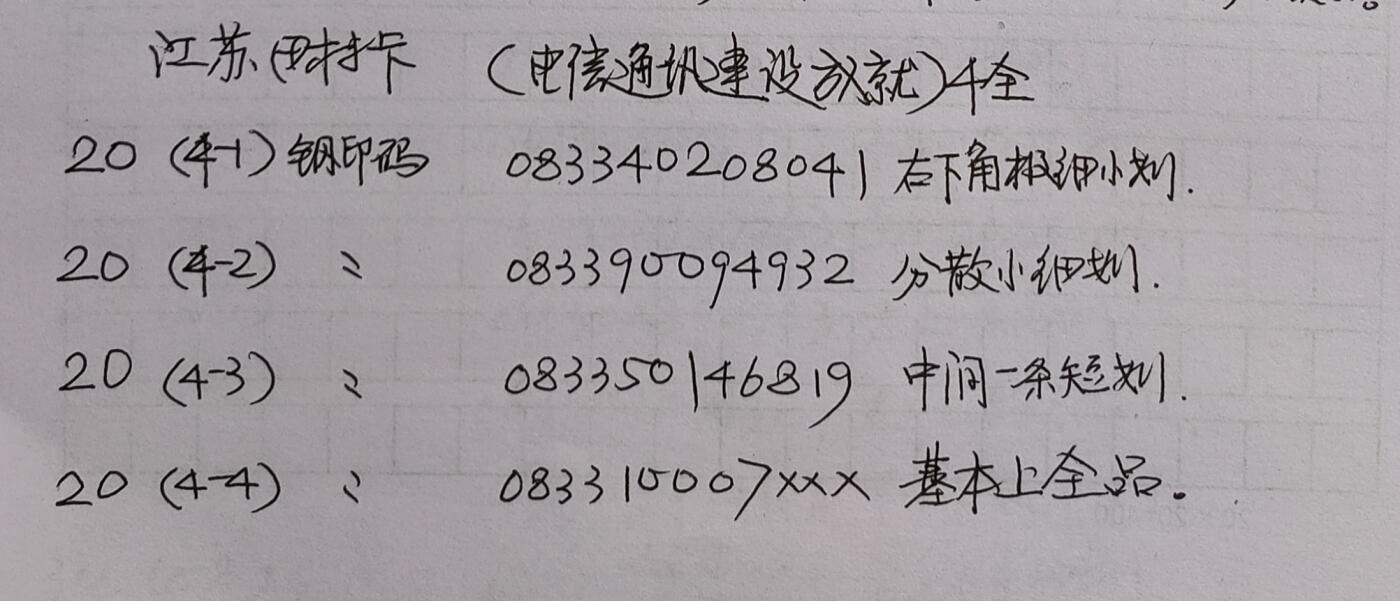 江苏田村卡 (电信通讯建设成就)4全
20 (4-1) 钢印码 083340208041 右下角极细小划.
20 (4-2) 〃 083390094932 分散小细划.
20 (4-3) 〃 083350146819 中间一条短划.
20 (4-4) 〃 083310007xxx 基本上全品。